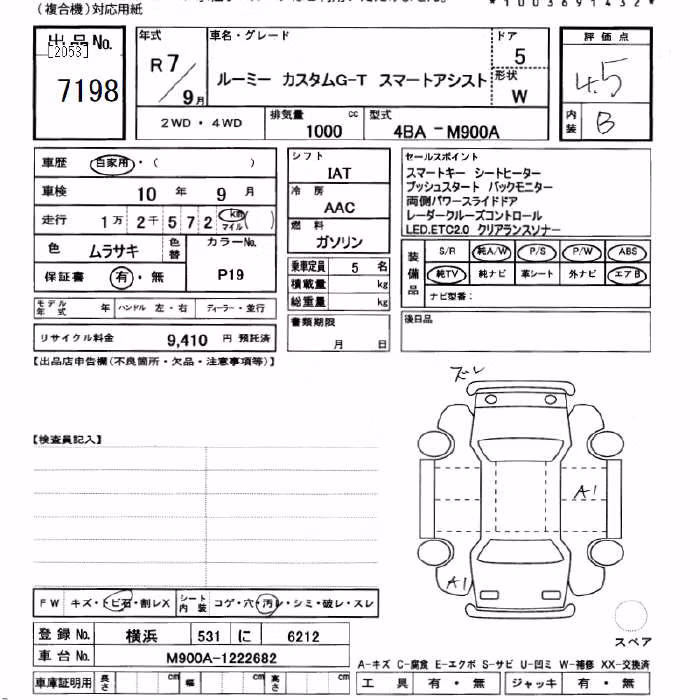 (複合機)対応用紙
*1003691432*
出品No.
[2053]
7198
年式
R7/9月
車名・グレード
ルーミー カスタムG-T スマートアシスト
ドア
5
形状
W
評価点
4.5
内装
B
2WD・4WD
排気量
1000 cc
型式
4BA-M900A
車歴 自家用・( )
車検 10年 9月
走行 1万 2千 5 7 2 km マイル ( )
色 ムラサキ 色替
カラーNo.
P19
保証書 有・無
モデル年式 年 ハンドル 左・右 ディーラー・並行
リサイクル料金 9,410 円 預託済
シフト
IAT
冷房
AAC
燃料
ガソリン
乗車定員 5 名
積載量 kg
総重量 kg
書類期限
月 日
セールスポイント
スマートキー シートヒーター
プッシュスタート バックモニター
両側パワースライドドア
レーダークルーズコントロール
LED.ETC2.0 クリアランスソナー
装備品
S/R 純A/W P/S P/W ABS
純TV 純ナビ 革シート 外ナビ エアB
ナビ型番:
後日品
【出品店申告欄(不良箇所・欠品・注意事項等)】
ズレ
【検査員記入】
A1
A1
FW キズ・トビ石・割レX
シート内装 コゲ・穴・汚レ・シミ・破レ・スレ
登録No. 横浜 531 に 6212
車台No. M900A-1222682
スペア
A-キズ C-腐食 E-エクボ S-サビ U-凹ミ W-補修 XX-交換済
車庫証明用 長さ cm 幅 cm 高さ cm
工具 有・無 ジャッキ 有・無